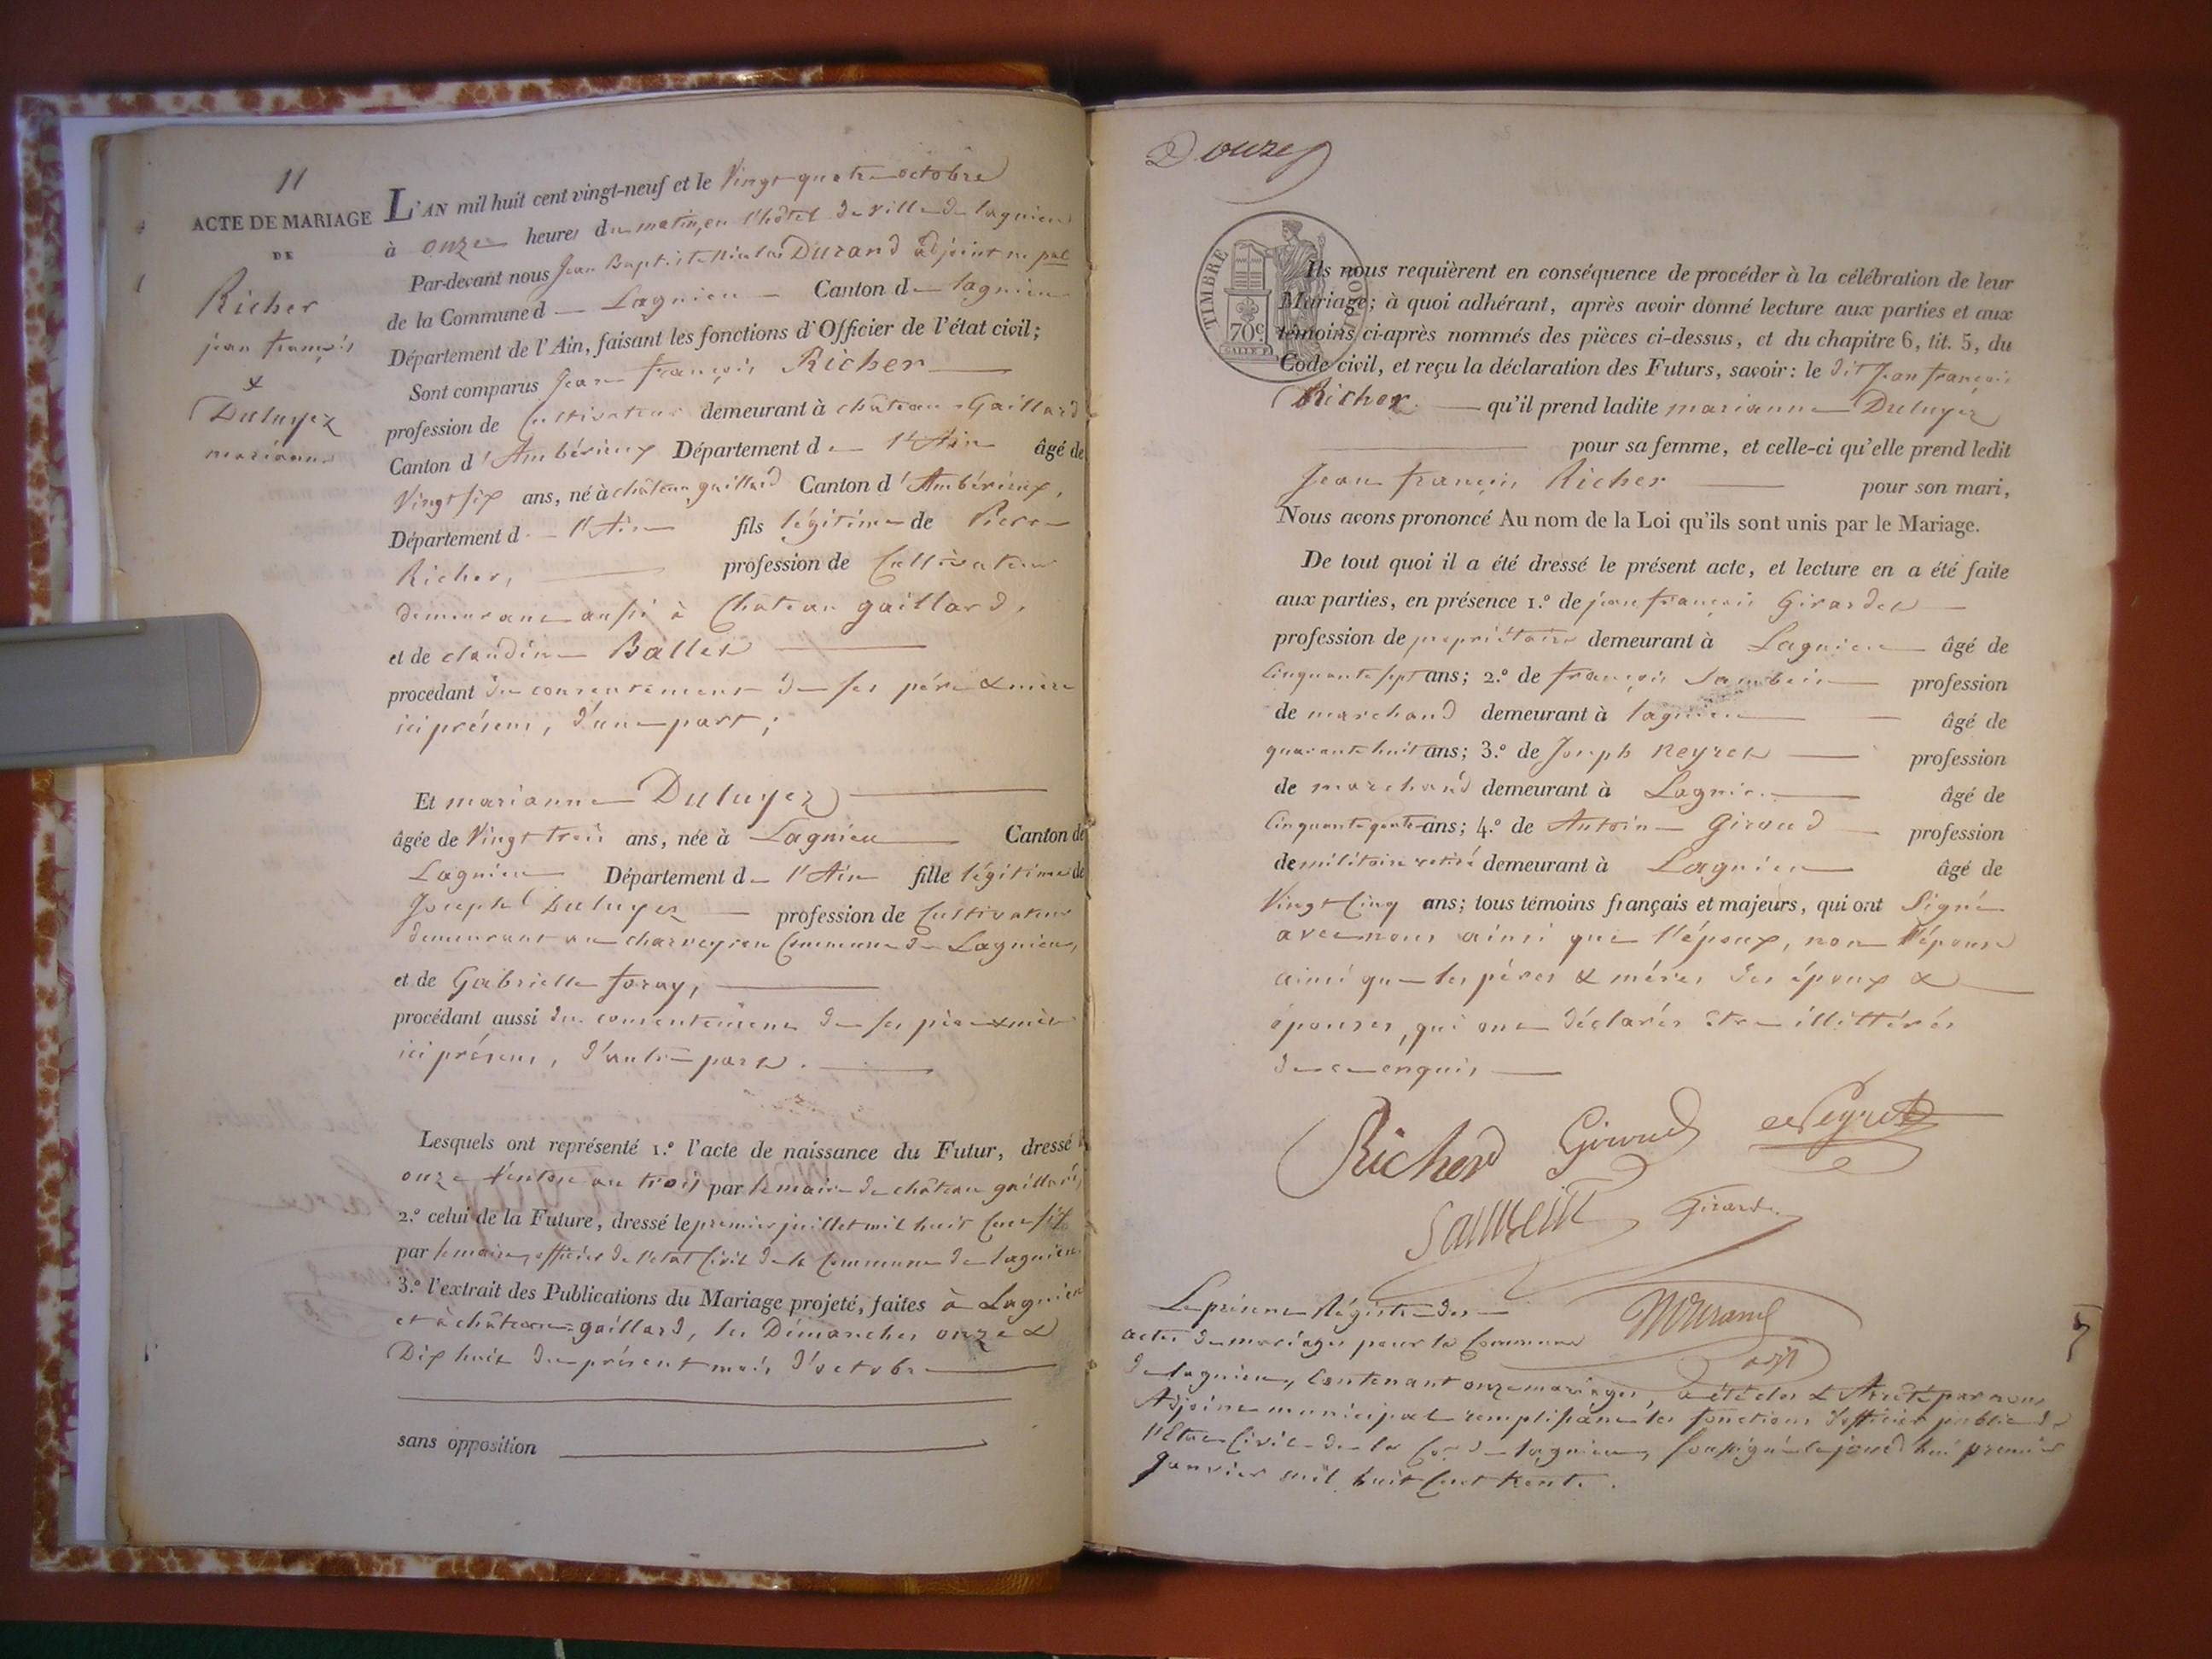 11
ACTE DE MARIAGE
DE
Richer
jean françois
&
Duluyez
marianne
L'AN mil huit cent vingt-neuf et le Vingt quatre octobre
à onze heures du matin, en l'hôtel de ville de lagnieu
Par-devant nous Jean Baptiste Nicolas Durand adjoint m pal
de la Commune d Lagnieu Canton de lagnieu
Département de l'Ain, faisant les fonctions d'Officier de l'état civil;
Sont comparus Jean françois Richer
profession de Cultivateur demeurant à château-Gaillard
Canton d'Ambérieux Département de l'Ain âgé de
Vingt six ans, né à château gaillard Canton d'Ambérieux,
Département d l'Ain fils légitime de Pierre
Richer, profession de Cultivateur
demeurant aussi à Chateau gaillard,
et de claudine Ballet
procédant du consentement de ses père & mère
ici présens, d'une part;
Et marianne Duluyez
âgée de Vingt trois ans, née à Lagnieu Canton de
Lagnieu Département de l'Ain fille légitime de
Joseph Duluyez profession de Cultivateur
demeurant au charveyron Commune de Lagnieu,
et de Gabrielle foray,
procédant aussi du consentement de ses père & mère
ici présens, d'autre part.
Lesquels ont représenté 1.º l'acte de naissance du Futur, dressé le
onze Ventose an trois par le maire de château gaillard,
2.º celui de la Future, dressé le premier juillet mil huit Cent six
par le maire, officier de l'état Civil de la Commune de lagnieu
3.º l'extrait des Publications du Mariage projeté, faites à Lagnieu
et à château-gaillard, les Dimanches onze &
Dix huit du présent mois d'octobre
sans opposition
Douze
TIMBRE ROYAL
70 c
Ils nous requièrent en conséquence de procéder à la célébration de leur
Mariage; à quoi adhérant, après avoir donné lecture aux parties et aux
témoins ci-après nommés des pièces ci-dessus, et du chapitre 6, tit. 5, du
Code civil, et reçu la déclaration des Futurs, savoir: le dit Jean françois
Richer qu'il prend ladite marianne Duluyez
pour sa femme, et celle-ci qu'elle prend ledit
Jean françois Richer pour son mari,
Nous avons prononcé Au nom de la Loi qu'ils sont unis par le Mariage.
De tout quoi il a été dressé le présent acte, et lecture en a été faite
aux parties, en présence 1.º de jean françois Girardet
profession de propriétaire demeurant à Lagnieu âgé de
Cinquante sept ans; 2.º de françois Sambein profession
de marchand demeurant à lagnieu âgé de
quarante huit ans; 3.º de Joseph Neyret profession
de marchand demeurant à Lagnieu âgé de
Cinquante quatre ans; 4.º de Antoine Giroud profession
de militaire retiré demeurant à Lagnieu âgé de
Vingt Cinq ans; tous témoins français et majeurs, qui ont Signé
avec nous ainsi que l'époux, non l'épouse
ainsi que les pères & mères des époux &
épouses, qui ont déclarés être illittérés
de ce enquis
Richerd Giroud Neyret
Sambein Girardet
NDurand
adjt
Le présent Régistre des
actes de mariages pour la Commune
de lagnieu, Contenant onze mariages, a été clos & Arrêté par nous
Adjoint municipal remplissant les fonctions d'officier public de
l'Etat Civil de la Cne de lagnieu, soussigné le jourd'hui premier
Janvier mil huit Cent trente.